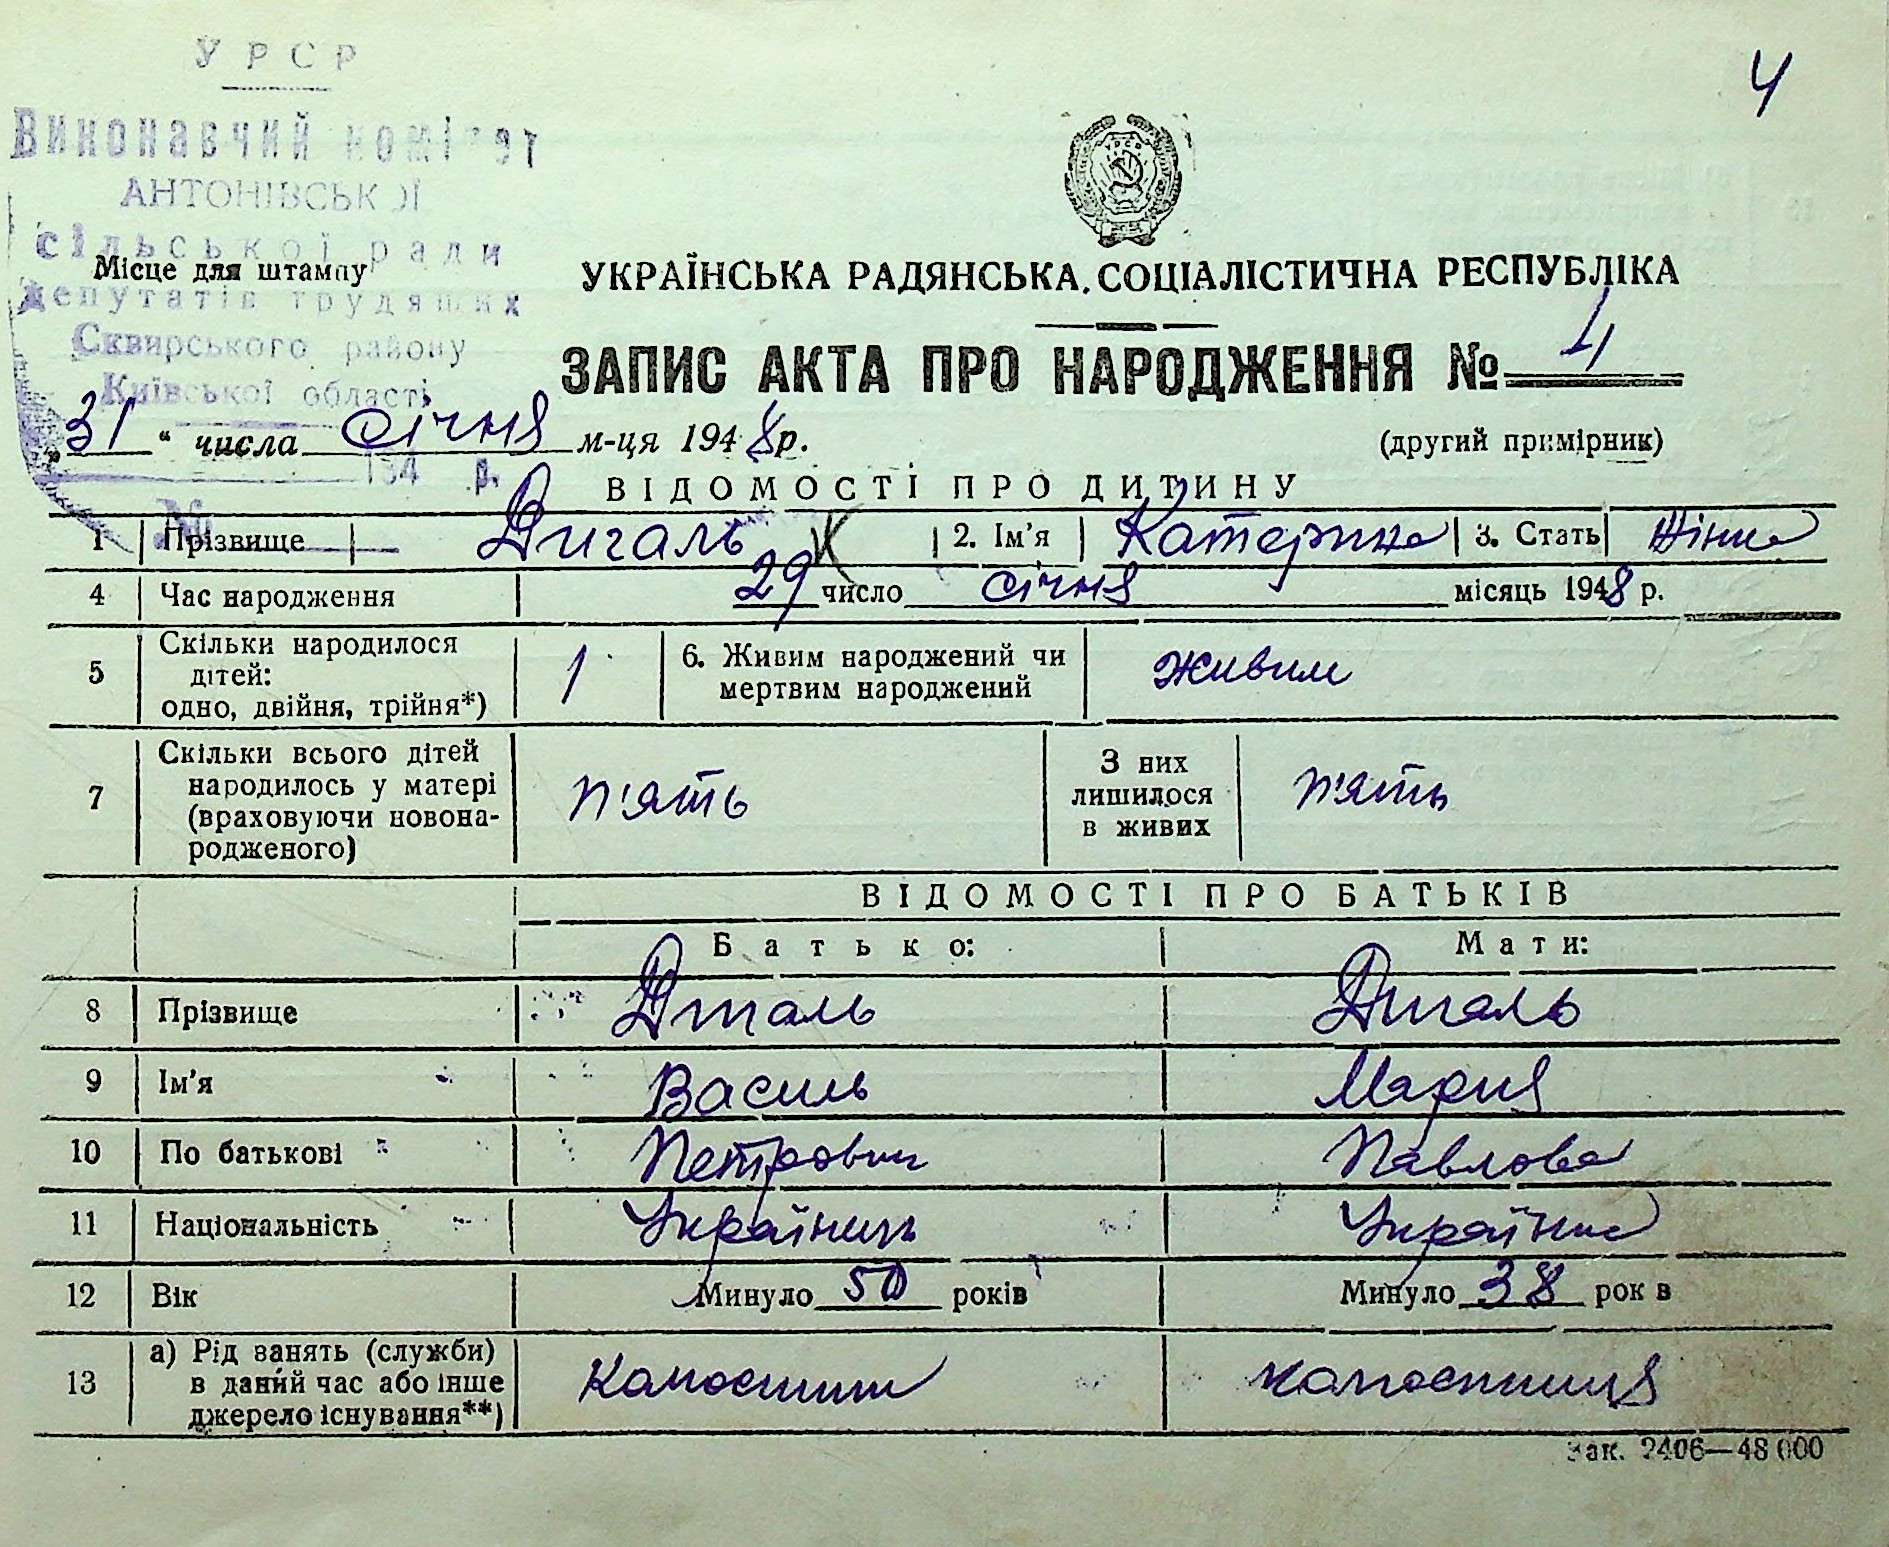 У Р С Р
4
Виконавчий комітет
АНТОНІВСЬКОЇ
сільської ради
Місце для штампу
депутатів трудящих
Сквирського району
Київської області
УРСР
УКРАЇНСЬКА РАДЯНСЬКА СОЦІАЛІСТИЧНА РЕСПУБЛІКА
ЗАПИС АКТА ПРО НАРОДЖЕННЯ № 4
„31“ числа січня м-ця 1948 р.
(другий примірник)
194 р.
№
ВІДОМОСТІ ПРО ДИТИНУ
1 Прізвище Дигаль 2. Ім'я Катерина 3. Стать Жіноч
4 Час народження 29 число січня місяць 1948 р.
5 Скільки народилося дітей: одно, двійня, трійня*) 1 6. Живим народжений чи мертвим народжений живим
7 Скільки всього дітей народилось у матері (враховуючи новонародженого) п'ять З них лишилося в живих п'ять
ВІДОМОСТІ ПРО БАТЬКІВ
Батько: Мати:
8 Прізвище Дигаль Дигаль
9 Ім'я Василь Мария
10 По батькові Петрович Павлова
11 Національність Українець Українка
12 Вік Минуло 50 років Минуло 38 рок в
13 а) Рід занять (служби) в даний час або інше джерело існування**) Колгоспник колгоспниця
Зак. 2406—48 000